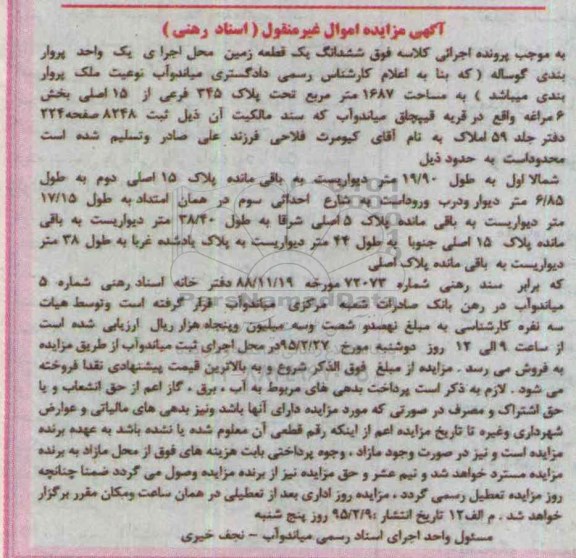 آگهی مزایده اموال غیرمنقول ( اسناد رهنی )
به موجب پرونده اجرائی کلاسه فوق ششدانگ یک قطعه زمین محل اجرا ی یک واحد پروار
بندی گوساله ( که بنا به اعلام کارشناس رسمی دادگستری میاندوآب نوعیت ملک پروار
بندی میباشد ) به مساحت ۱۶۸۷ متر مربع تحت پلاک ۳۴۵ فرعی از ۱۵ اصلی بخش
۶ مراغه واقع در قریه قپچاق میاندوآب که سند مالکیت آن ذیل ثبت ۸۲۴۸ صفحه ۲۲۴
دفتر جلد ۵۹ املاک به نام آقای کیومرث فلاحی فرزند علی صادر وتسلیم شده است
محدوداست به حدود ذیل
شمالا اول به طول ۱۹/۹۰ متر دیواریست به باقی مانده پلاک ۱۵ اصلی دوم به طول
۶/۸۵ متر دیوار ودرب وروداست به شارع احداثی سوم در همان امتداد به طول ۱۷/۱۵
متر دیواریست به باقی مانده پلاک ۵ اصلی شرقا به طول ۳۸/۴۰ متر دیواریست به باقی
مانده پلاک ۱۵ اصلی جنوبا به طول ۴۴ متر دیواریست به پلاک یادشده غربا به طول ۳۸ متر
دیواریست به باقی مانده پلاک اصلی
که برابر سند رهنی شماره ۷۲۰۷۳ مورخه ۸۸/۱۱/۱۹ دفتر خانه اسناد رهنی شماره ۵
میاندوآب در رهن بانک صادرات شعبه مرکزی میاندوآب قرار گرفته است وتوسط هیات
سه نفره کارشناسی به مبلغ نهصدو شصت وسه میلیون وپنجاه هزار ریال ارزیابی شده است
از ساعت ۹ الی ۱۲ روز دوشنبه مورخ ۹۵/۲/۲۷ در محل اجرای ثبت میاندوآب از طریق مزایده
به فروش می رسد . مزایده از مبلغ فوق الذکر شروع و به بالاترین قیمت پیشنهادی نقدا فروخته
می شود . لازم به ذکر است پرداخت بدهی های مربوط به آب ، برق ، گاز اعم از حق انشعاب و یا
حق اشتراک و مصرف در صورتی که مورد مزایده دارای آنها باشد ونیز بدهی های مالیاتی و عوارض
شهرداری وغیره تا تاریخ مزایده اعم از اینکه رقم قطعی آن معلوم شده یا نشده باشد به عهده برنده
مزایده است و نیز در صورت وجود مازاد ، وجوه پرداختی بابت هزینه های فوق از محل مازاد به برنده
مزایده مسترد خواهد شد و نیم عشر و حق مزایده نیز از برنده مزایده وصول می گردد ضمنا چنانچه
روز مزایده تعطیل رسمی گردد ، مزایده روز اداری بعد از تعطیلی در همان ساعت ومکان مقرر برگزار
خواهد شد . م الف ۱۲ تاریخ انتشار :۹۵/۲/۹ روز پنج شنبه
مسئول واحد اجرای اسناد رسمی میاندوآب - نجف خیری